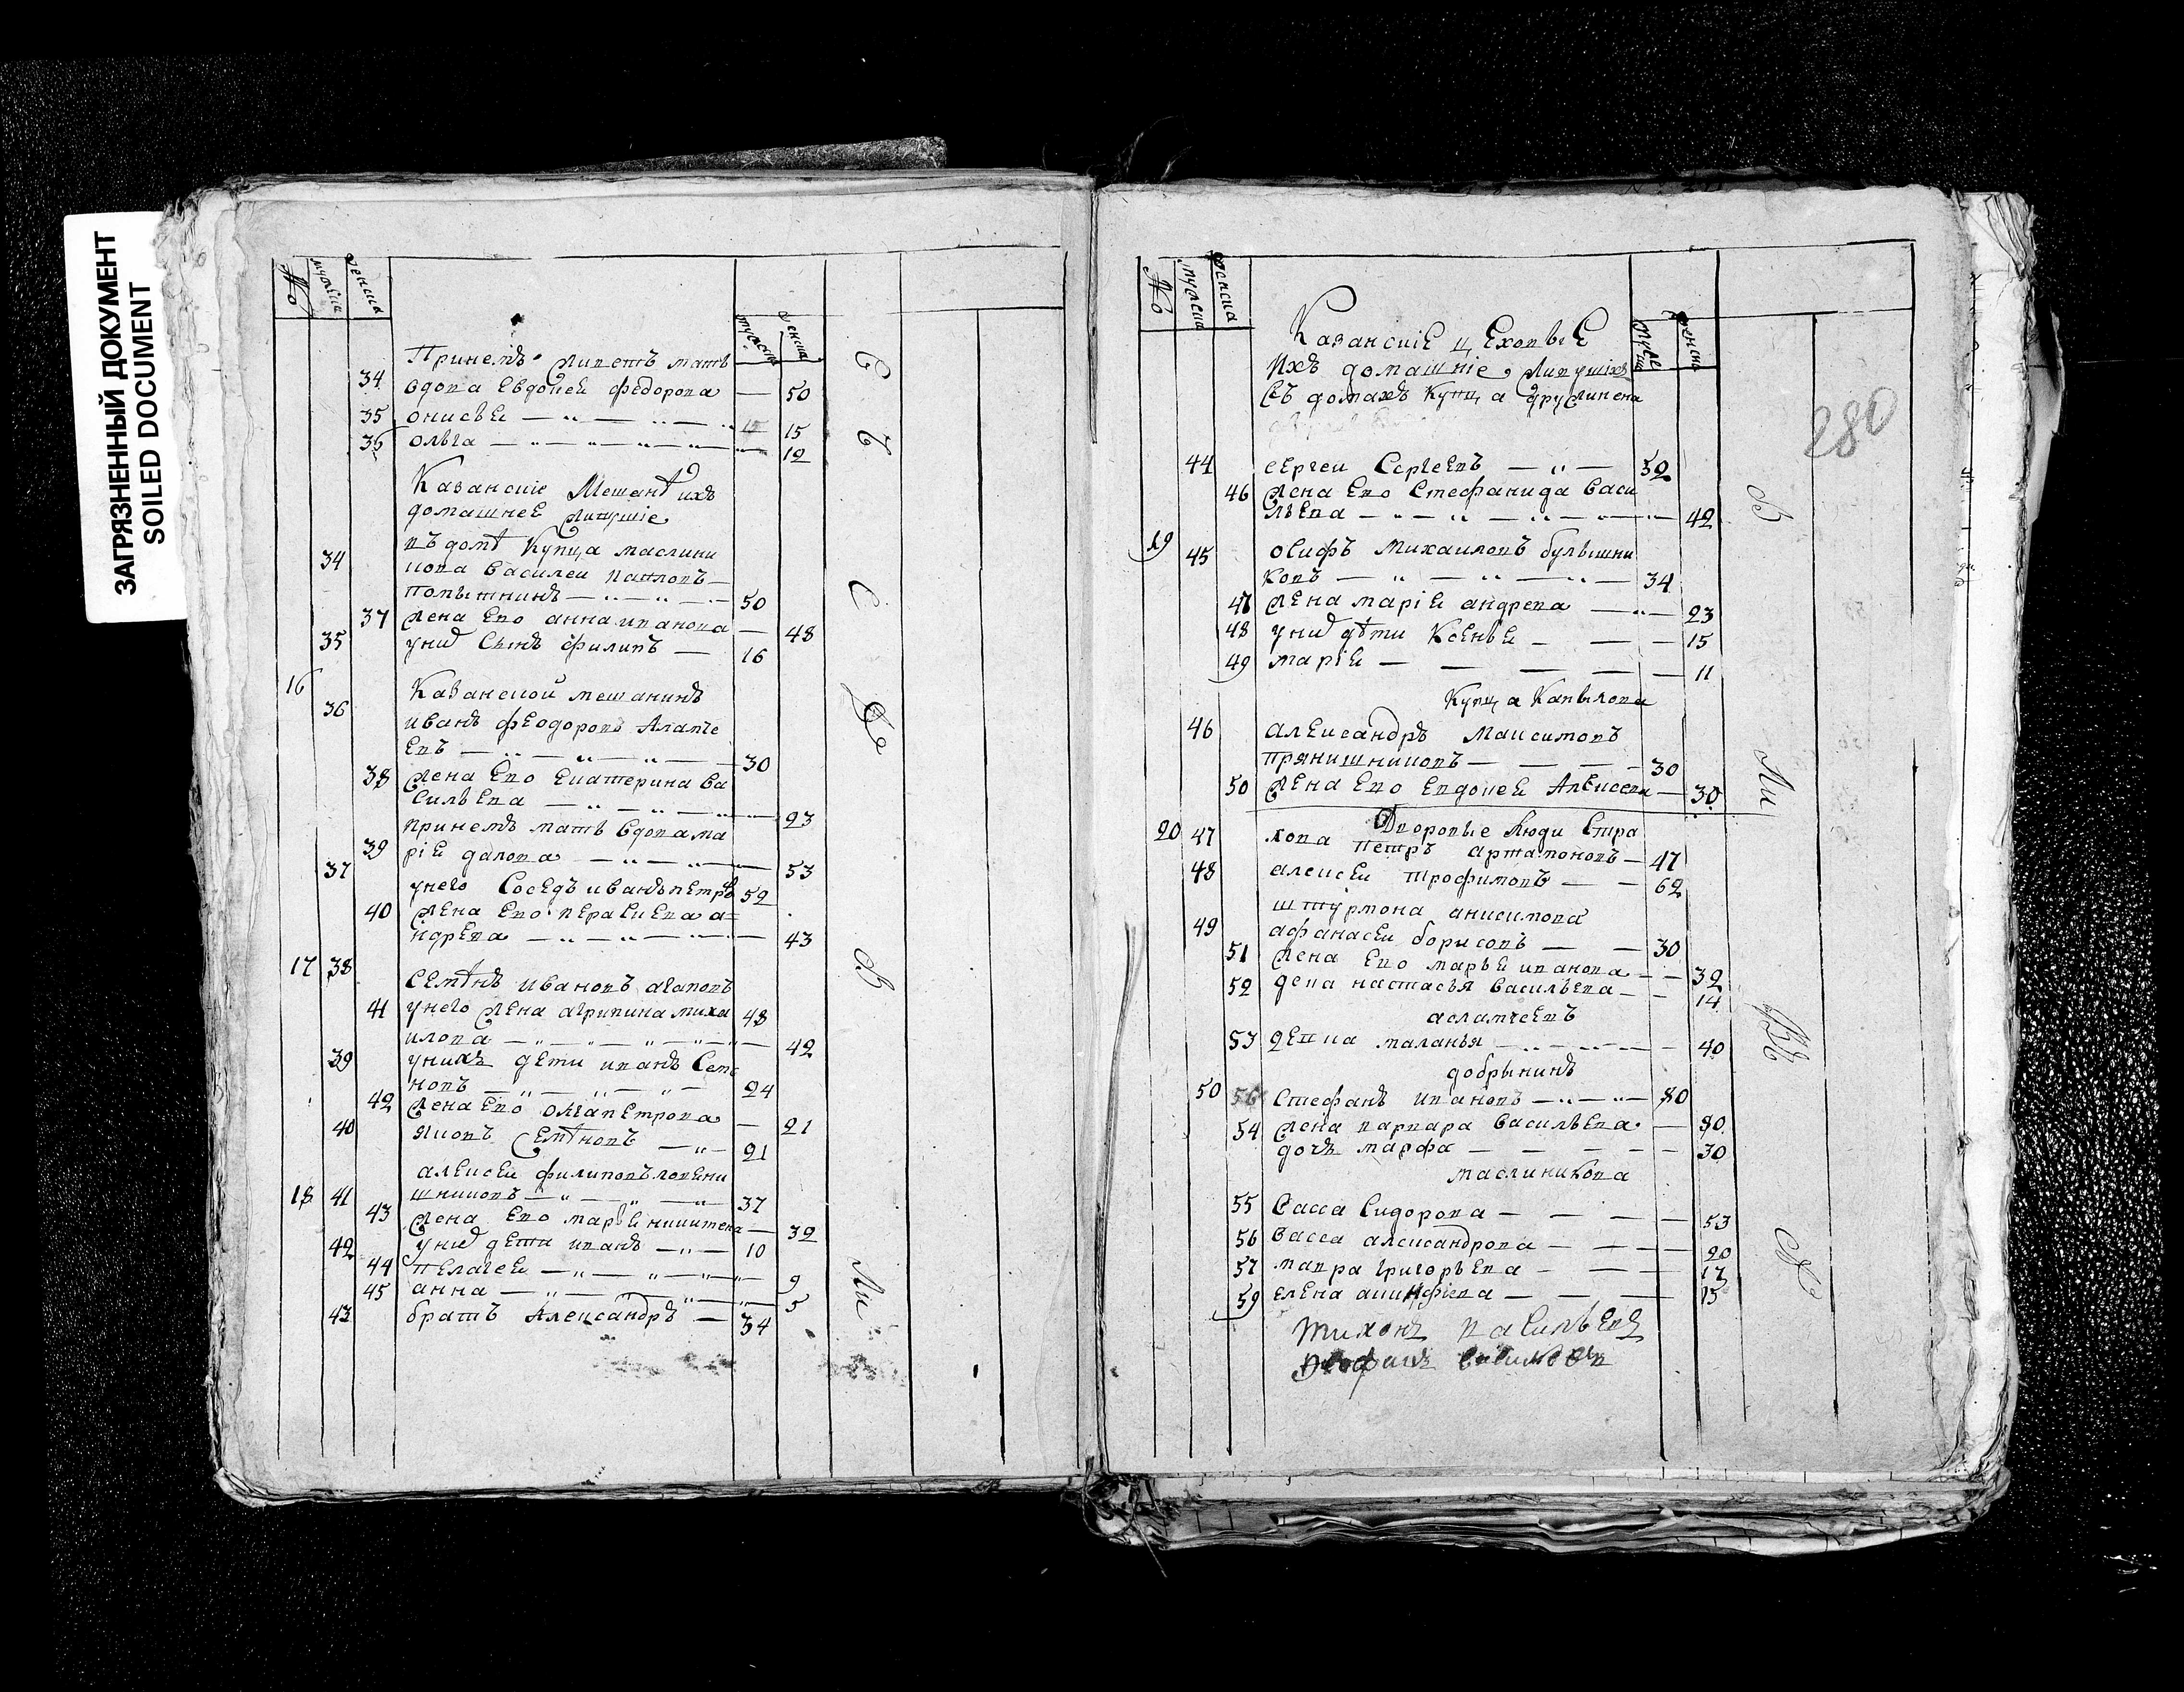 ЗАГРЯЗНЕННЫЙ ДОКУМЕНТ
SOILED DOCUMENT
№ мужеска женска
мужеска женска
Принемъ живетъ мать
34 вдова Евдокеи федорова — 50
35 онисьи — 15
36 ольга — 12
Казанские Мещанѣ ихъ
домашнеи живущіе
въ домѣ Купца маслени
34 кова василеи павловъ
попыткинъ — 50
37 жена Ево анна иванова — 48
35 унихъ Сынъ филипъ — 16
16 Казанской мещанинъ
36 иванъ феодоровъ Алатче
Евъ — 30
38 жена Ево Екатерина Ва
сильева — 23
принемъ мать вдова ма
39 ріи далова — 53
37 унего Соседъ иванъ петро 52
40 жена Ево Параскева а
ндрева — 43
17 38 Семѣнъ ивановъ агаповъ
41 унего жена агрипина миха 48
илова — 42
39 унихъ дети иванъ Семе
новъ — 24
42 жена Ево олга петрова — 21
40 яковъ Семѣновъ — 21
алексеи филиповъ
18 41 шниковъ — 37
43 жена Ево марьи никитена — 32
42 унихъ дети иванъ — 10
44 пелагеи — 9
45 анна — 5
43 братъ Александръ — 34
Ли
№ мужеска женска
женска
280
Казанские цеховые
ихъ домашніе живущіхъ
въ домахъ Купца
44 сергеи Сергеевъ — 52
46 жена Ево Стефанида васи
льева — 42
19 45 осифъ Михаиловъ булышни
ковъ — 34
47 жена маріи андрева — 23
48 унихъ дѣти Ксеньи — 15
49 маріи — 11
Купца Капылова
46 Александръ Максимовъ
прянишниковъ — 30
50 жена Ево Евдокеи Алексева — 30
Дворовые Люди Стра
20 47 хова петръ артамоновъ — 47
48 алексеи трофимовъ — 62
штурмона анисимова
49 афанасеи борисовъ — 30
51 жена Ево марьи иванова — 32
52 дева настасья васильева — 14
асламчеевъ
53 девка маланья — 40
добрынинъ
50 Стефанъ ивановъ — 80
54 жена варвара васильева — 80
дочь марфа — 30
масленикова
55 васса Сидорова — 53
56 васса александрова — 20
57 мавра григорьева — 17
59 елена — 15
Тихонъ васильевъ
Ли